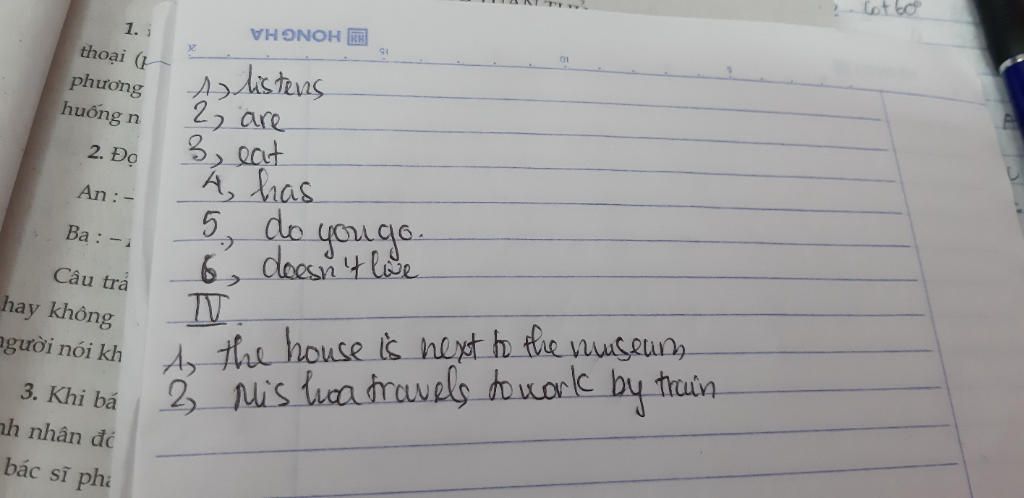 1. 
thoại (p
phương
huống n
2. Đọ
An : –
Ba : –
Câu trả
hay không
người nói kh
3. Khi bá
nh nhân đó
bác sĩ phả
HONG HA
15
10
5
1, listens
2, are
3, eat
4, has
5, do you go.
6, doesn't live
IV
1, the house is next to the museum
2, Mis hoa travels to work by train